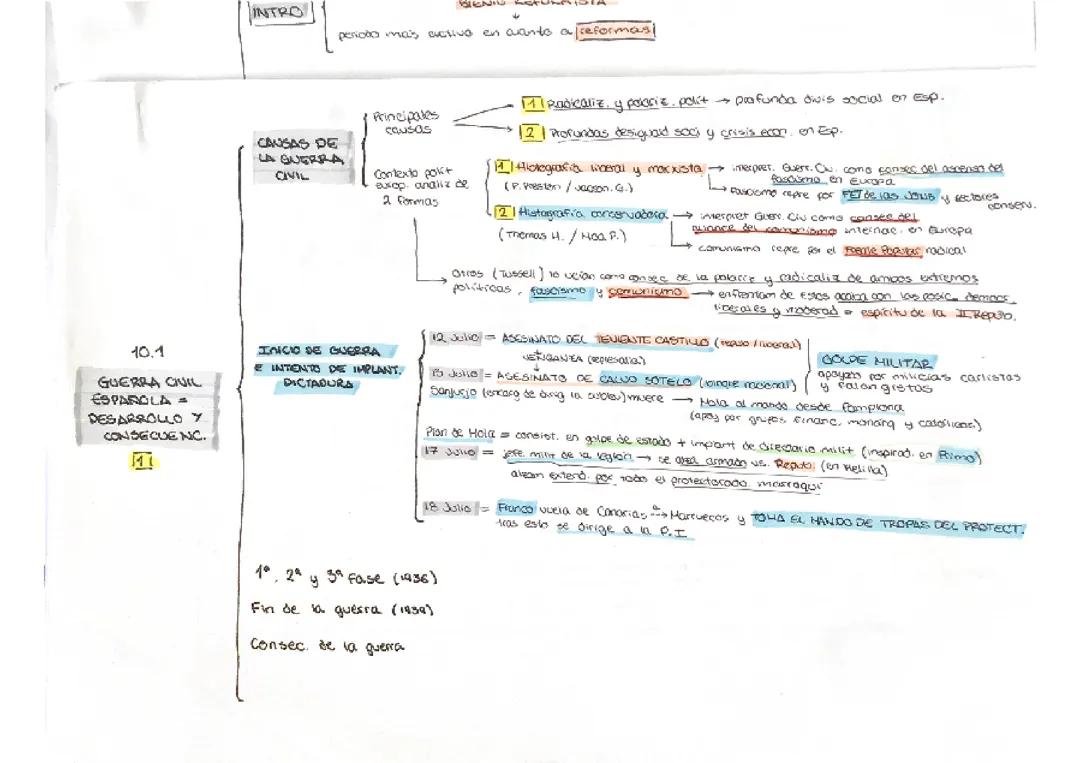 INTRO
BIENIO REFORMISTA
periodo mas activo en cuanto a reformas
CAUSAS DE
LA GUERRA
CIVIL
Principales
causas
1 Radicaliz. y polariz. polít → profunda divis social en Esp.
2 Profundas desiguald soci y crisis econ. en Esp.
Contexto polít
europ. analiz de
2 formas
1 Histografía liberal y marxista → interpret. Guerr. Civ. como consec del ascenso del
fascismo en Europa
(P. Preston / Jacson. G.)
→ Fascismo repre por FET de las JONS y sectores
conserv.
2 Histografía conservadora → interpret Guerr. Civ como consec del
avance del comunismo internac. en Europa
(Thomas H. / Moa P.)
→ comunismo repre por el Frente Popular radical
→ Otros (Tussell) lo veían como consec de la polariz y radicaliz de ambos extremos
políticos, fascismo y comunismo → enfrentam de estos acaba con las posic. democr.
liberales y moderad = espíritu de la II Repúb.
10.1
GUERRA CIVIL
ESPAÑOLA =
DESARROLLO Y
CONSECUENC.
1
INICIO DE GUERRA
E INTENTO DE IMPLANT.
DICTADURA
12 Julio = ASESINATO DEL TENIENTE CASTILLO (repúb / liberal)
VENGANZA (represalia)
13 Julio = ASESINATO DE CALVO SOTELO (bloque nacional)
GOLPE MILITAR
apoyado por milicias carlistas
y falangistas
Sanjurjo (encarg de dirig la sublev) muere → Mola al mando desde Pamplona
(apoy por grupos financ. monárq y católicos)
Plan de Mola = consist. en golpe de estado + implant de directorio milit (inspirad. en Primo)
17 Julio = jefe milit de la legión → se alza armado vs. Repúb. (en Melilla)
alzam extend. por todo el protectorado marroquí
18 Julio = Franco vuela de Canarias a → Marruecos y TOMA EL MANDO DE TROPAS DEL PROTECT.
tras esto se dirige a la P.I
1ª, 2ª y 3ª Fase (1936)
Fin de la guerra (1939)
Consec. de la guerra